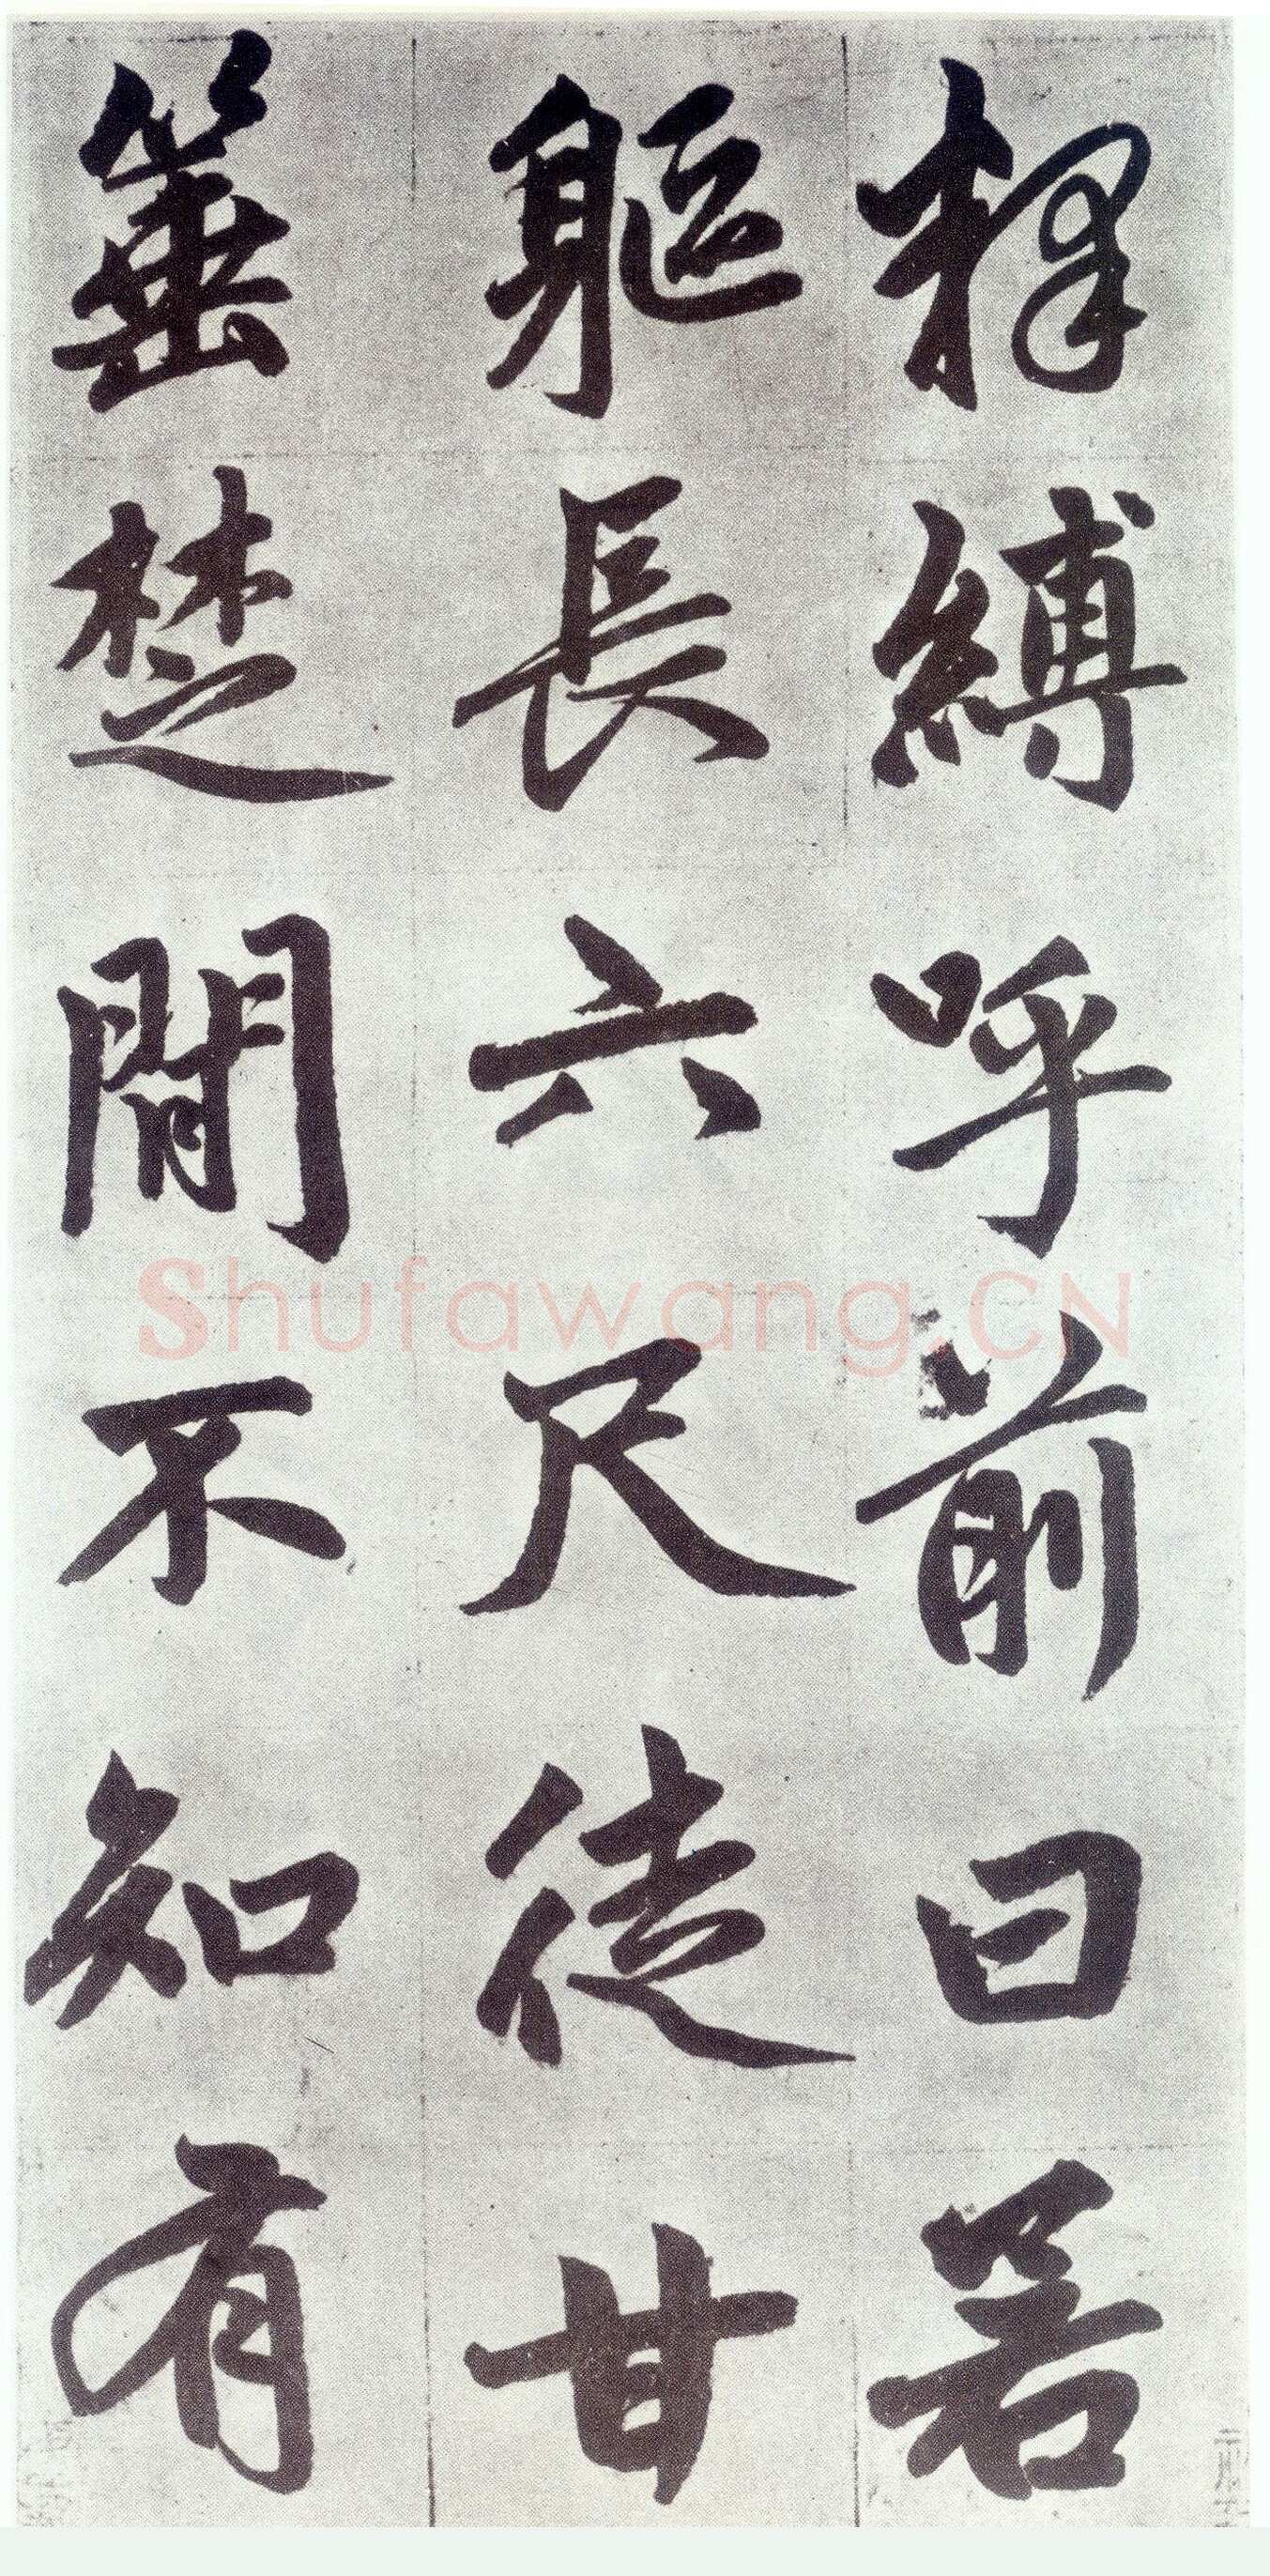 擇縛呼前曰若
軀長六尺徒甘
箠楚間不知有
Shufawang.CN